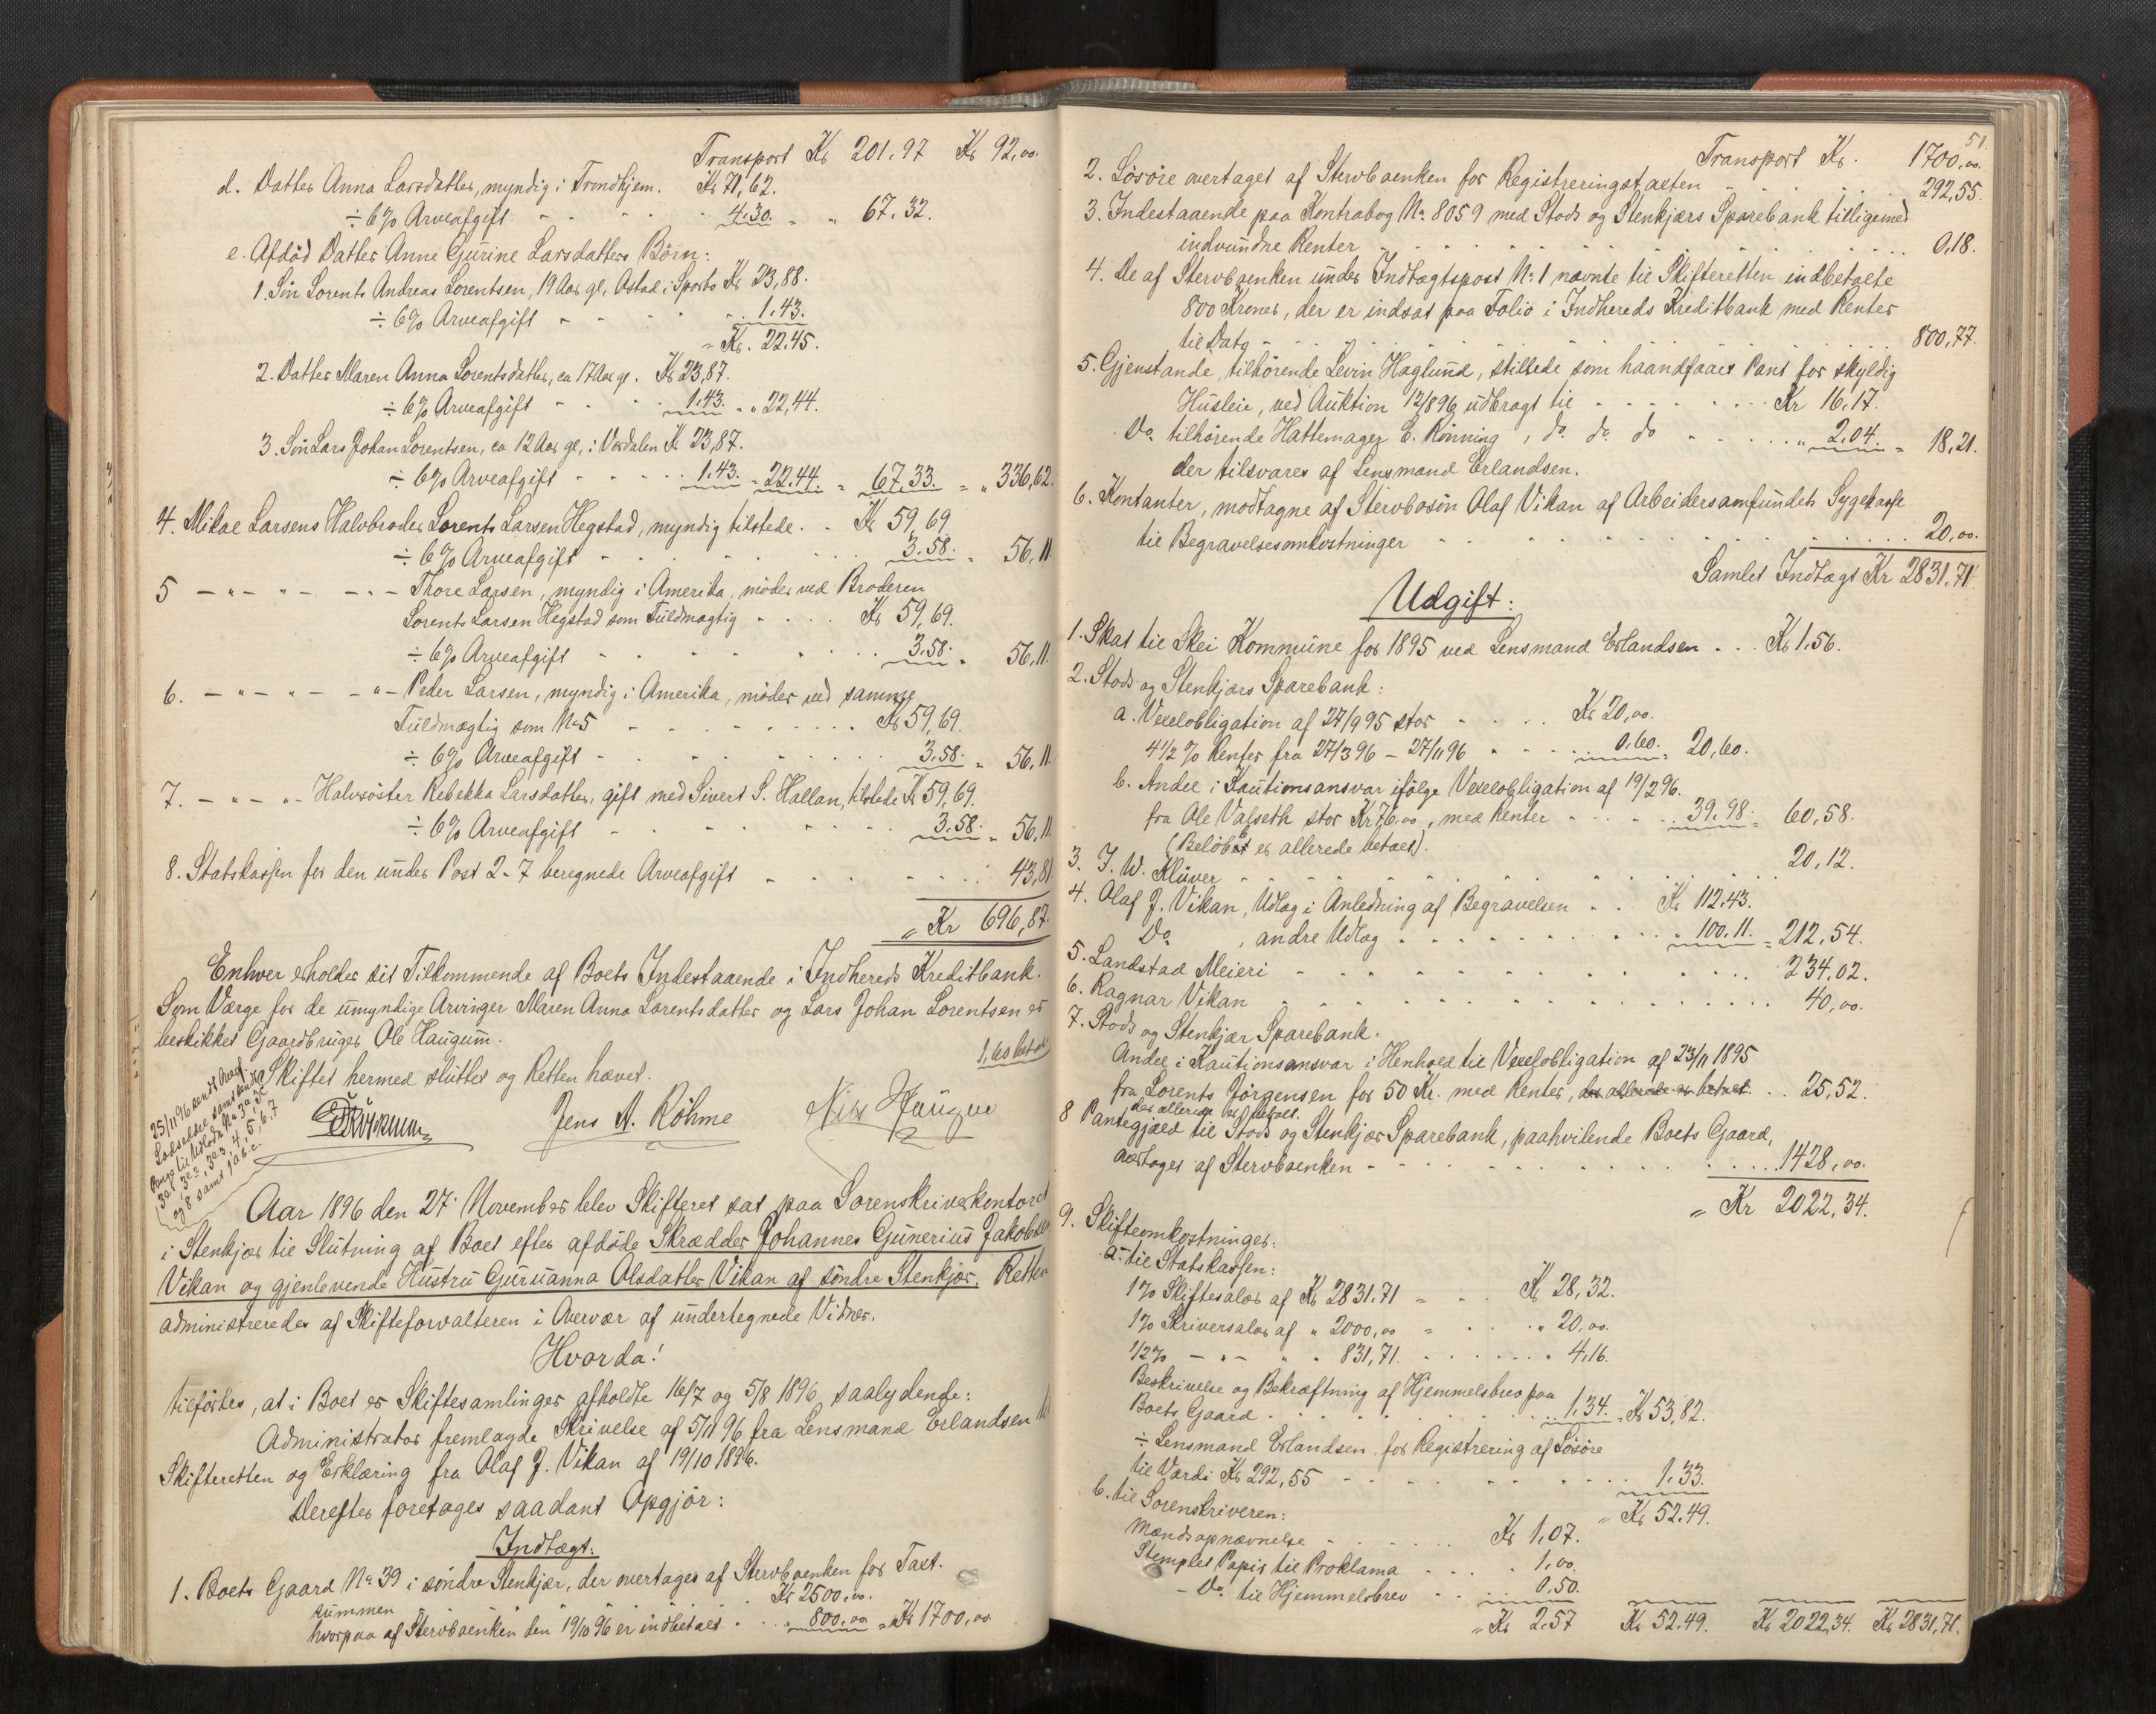 Transport Kr 201.97 Kr 92,00.
d. Datter Anna Larsdatter, myndig i Trondhjem. Kr 71,62.
÷ 6% Arveafgift - - - - 4.30. = " 67.32.
e. Afdød Datter Anne Gurine Larsdatters Børn:
1. Søn Lorents Andreas Lorentsen, 19 Aar gl. Østad i Sparbo Kr 23,88.
÷ 6% Arveafgift - - - - - 1.43.
= Kr. 22.45.
2. Datter Maren Anna Lorentsdatter, ca 17 Aar gl. Kr 23,87.
÷ 6% Arveafgift - - - - 1.43. = " 22,44.
3. Søn Lars Johan Lorentsen, ca 12 Aar gl, i Værdalen Kr 23,87.
÷ 6% Arveafgift - - - - 1.43. = 22.44. = 67.33. = " 336,62.
4. Mikael Larsens Halvbroder Lorents Larsen Hegstad, myndig tilstede. - Kr 59,69
÷ 6% Arveafgift - - - - - 3.58. = 56,11.
5 - " - " - - " - Thore Larsen, myndig i Amerika, møder ved Broderen
Lorents Larsen Hegstad som Fuldmægtig - - - - Kr 59,69.
÷ 6% Arveafgift - - - - - 3.58. = 56,11.
6. - " - " - - " - Peder Larsen, myndig i Amerika, møder ved samme
Fuldmægtig som No 5 - - - - - Kr 59,69.
÷ 6% Arveafgift - - - - - 3.58. = 56,11.
7. - " - " - Halvsøster Rebekka Larsdatter, gift med Sivert S. Hallan, tilstede Kr 59,69.
÷ 6% Arveafgift - - - - - 3.58. = 56,11.
8. Statskassen for den under Post 2-7 beregnede Arveafgift - - - - 43,81
= Kr 696,87.
Enhver erholder sit Tilkommende af Boets Indestaaende i Indhereds Kreditbank.
Som Værge for de umyndige Arvinger Maren Anna Lorentsdatter og Lars Johan Lorentsen er
beskikket Gaardbruger Ole Haugum.
1,60 bet
Skiftet hermed sluttet og Retten hævet.
25/11 96
Jens A. Röhme
3a1, 3e2, 3e3, 4, 5, 6, 7
og 8 samt 1 a b c.
Aar 1896 den 27. November blev Skifteret sat paa Sorenskriverkontoret
i Stenkjær til Slutning af Boet efter afdøde Skrædder Johannes Gunerius Jakobsen
Vikan og gjenlevende Hustru Guruanna Olsdatter Vikan af søndre Stenkjær. Retten
administreredes af Skifteforvalteren i Overvær af undertegnede Vidner.
Hvorda!
tilførtes, at i Boet er Skiftesamlinger afholdte 16/7 og 5/8 1896, saalydende:
Administrator fremlagde Skrivelse af 5/11 96 fra Lensmand Erlandsen til
Skifteretten og Erklæring fra Olaf J. Vikan af 19/10 1896.
Derefter foretages saadant Opgjør:
Indtægt:
1. Boets Gaard No 39 i søndre Stenkjær, der overtages af Stervboenken for Taxt-
summen Kr 2500.00.
hvorpaa af Stervboenken den 19/10 96 er indbetalt - - " 800.00 = Kr 1700,00
51.
Transport Kr. 1700,00.
2. Løsøre overtaget af Stervboenken for Registreringstaxten - - - - 292,55.
3. Indestaaende paa Kontrabog No. 8059 med Stods og Stenkjærs Sparebank tilligemed
indvundne Renter - - - - - 0,18.
4. De af Stervboenken under Indtægtspost No. 1 nævnte til Skifteretten indbetalte
800 Kroner, der er indsat paa Folio i Indhereds Kreditbank med Renter
til Dato - - - - - 800,77.
5. Gjenstande, tilhørende Levin Haglund, stillede som haandfaaet Pant for skyldig
Husleie, ved Auktion 12/8 96 udbragt til - - - - - Kr 16.17.
Do tilhørende Hattemager E. Rønning, do do do - - - - " 2.04. = 18,21.
der tilsvares af Lensmand Erlandsen.
6. Kontanter, modtagne af Stervbosøn Olaf Vikan af Arbeidersamfundets Sygekasse
til Begravelsesomkostninger - - - - - 20,00.
Samlet Indtægt Kr 2831.71.
Udgift:
1. Skat til Skei Kommune for 1895 ved Lensmand Erlandsen - - - Kr 1.56.
2. Stods og Stenkjærs Sparebank:
a. Vexelobligation af 27/9 95 stor - - - - Kr 20,00.
4 1/2 % Renter fra 27/3 96 - 27/11 96 - - - - 0.60. = 20,60.
b. Andel i Kautionsansvar ifølge Vexelobligation af 19/2 96.
fra Ole Valseth stor Kr 76.00, med Renter - - - - 39.98. = 60,58.
(Beløbet er allerede betalt).
3. J. W. Klüver - - - - - 20,12.
4. Olaf J. Vikan, Udlæg i Anledning af Begravelsen - - Kr 112.43.
Do , andre Udlæg - - - - - " 100.11. = 212,54.
5. Landstad Meieri - - - - - 234.02.
6. Ragnar Vikan - - - - - 40,00.
7. Stods og Stenkjær Sparebank.
Andel i Kautionsansvar i Henhold til Vexelobligation af 23/11 1895
fra Lorents Jørgensen for 50 Kr. med Renter, der allerede er betalt. - - 25,52.
der allerede er betalt.
8 Pantegjæld til Stods og Stenkjær Sparebank, paahvilende Boets Gaard,
overtages af Stervboenken - - - - - 1428,00.
= Kr 2022,34.
9. Skifteomkostninger:
a. til Statskassen:
1% Skiftesalær af Kr 2831.71 = - - Kr 28,32.
1% Skriversalær af " 2000,00 = - - " 20,00.
1/2% - " - " " 831,71. - - - " 4.16.
Beskrivelse og Bekræftning af Hjemmelsbrev paa
Boets Gaard - - - - - 1.34. = Kr 53,82.
÷ Lensmand Erlandsen for Registrering af Løsøre
til Værdi Kr 292,55 - - - - - 1.33.
= Kr 52.49.
b. til Sorenskriveren:
Mændsopnævnelse - - - - Kr 1,07.
Stemplet Papir til Proklama - - - - 1,00.
- Do. til Hjemmelsbrev - - - - 0,50.
= Kr 2.57 Kr 52.49. Kr 2022,34. Kr 2831,71.